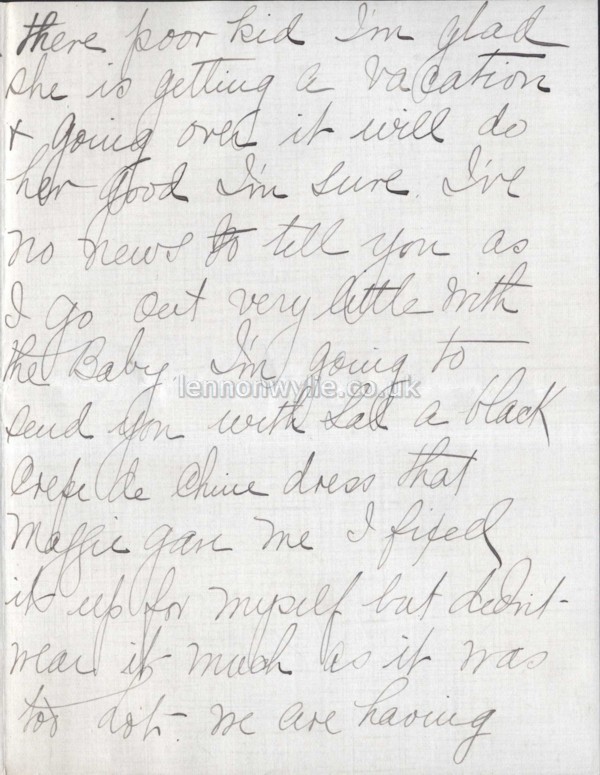 there poor kid I'm glad
she is getting a vacation
+ going over it will do
her good I'm sure. I've
no news to tell you as
I go out very little with
the Baby I'm going to
lennonwylie.co.uk
send you with Sal a black
Crepe de Chine dress that
Maggie gave me I fixed
it up for myself but didn't
wear it much as it was
too hot - we are having